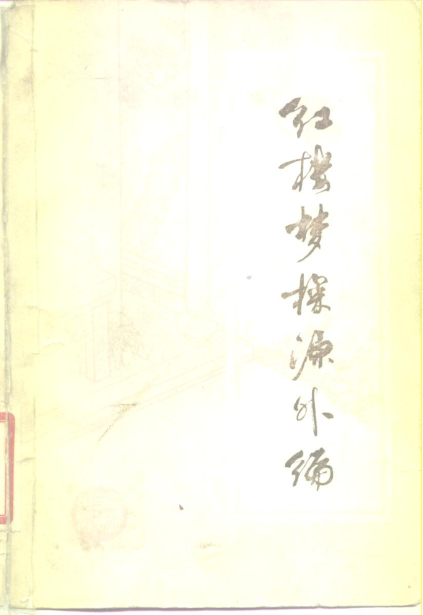 红楼梦探源外编